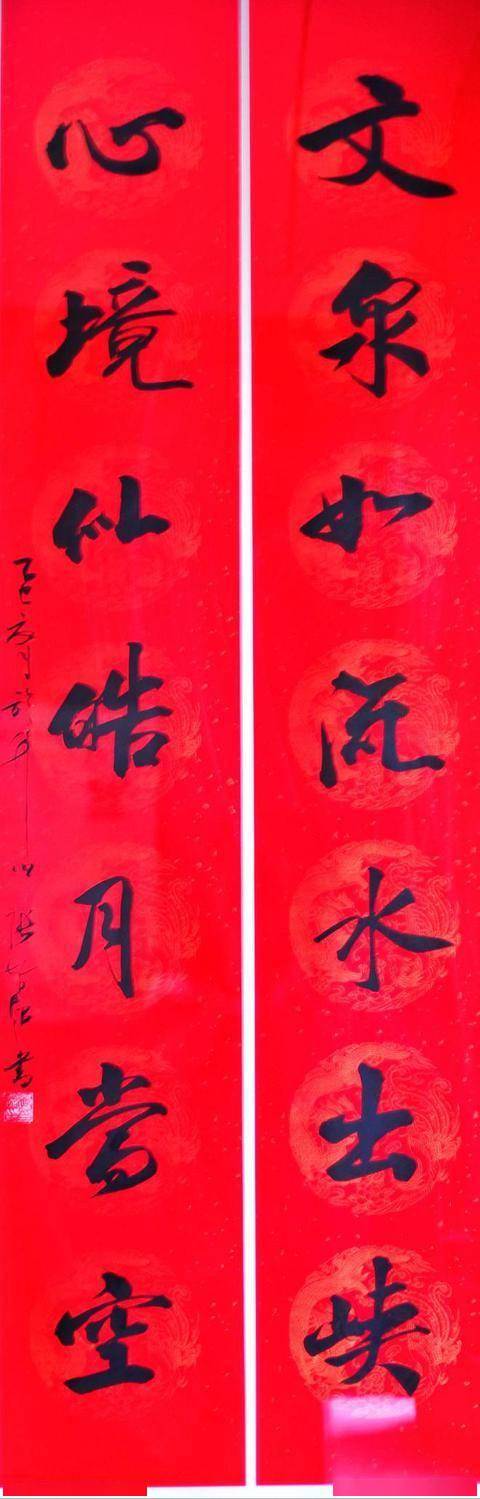 文泉如流水出峡
心境似皓月當空
乙巳